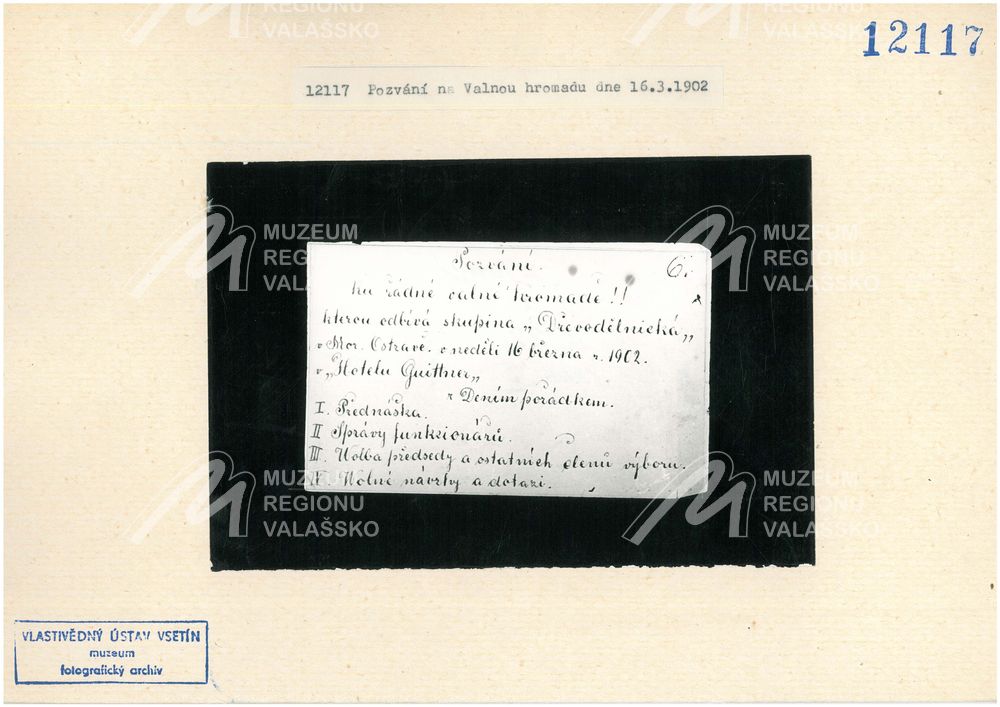 12117
12117 Pozvání na Valnou hromadu dne 16.3.1902
Pozvání.
6.
ku řádné valné hromadě!!
kterou odbívá skupina „Dřevodělnická„
v Mor. Ostravě. v neděli 16 března r. 1902.
v „Hotelu Guittner„
z Dením pořádkem.
I. Přednáška.
II Správy funkcionářů.
III. Wolba předsedy a ostatních členů výboru.
IV. Wolné návrhy a dotazi.
VLASTIVĚDNÝ ÚSTAV VSETÍN
muzeum
fotografický archiv
MUZEUM
REGIONU
VALAŠSKO
MUZEUM
REGIONU
VALAŠSKO
MUZEUM
REGIONU
VALAŠSKO
MUZEUM
REGIONU
VALAŠSKO
REGIONU
VALAŠSKO
REGIONU
VALAŠSKO